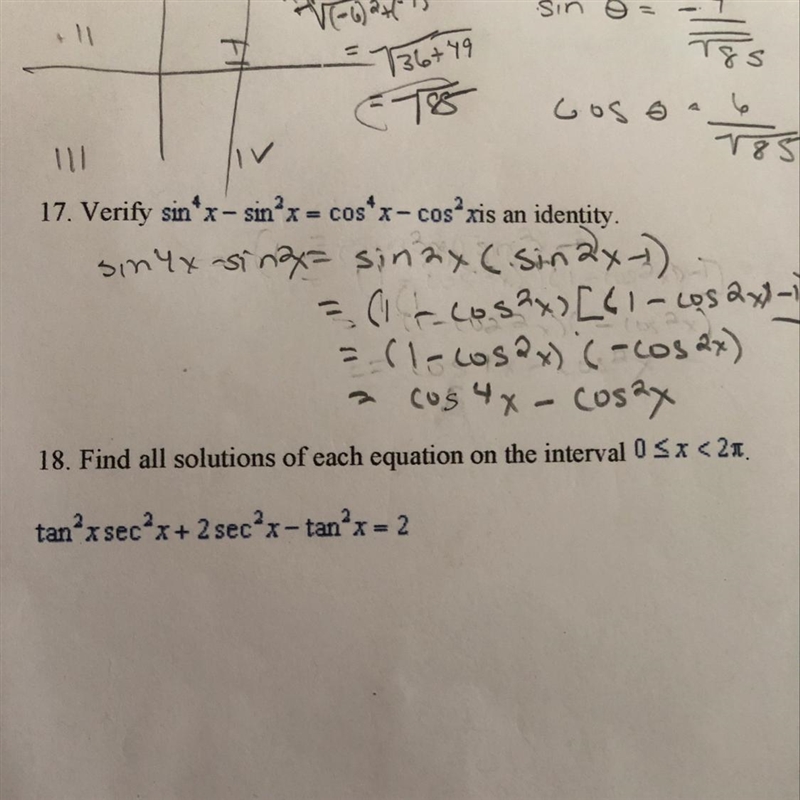 II
√(-6)²+
= √36+49
= √85
sin θ = -
√85
cos θ = 6/√85
III
IV
17. Verify sin⁴x – sin²x = cos⁴x – cos²xis an identity.
sin4x - sin2x = sin2x (sin2x-1)
= (1 - cos2x) [(1 - cos2x) -1]
= (1 - cos2x) (-cos2x)
= cos4x - cos2x
18. Find all solutions of each equation on the interval 0 ≤ x < 2π.
tan²x sec²x + 2 sec²x – tan²x = 2